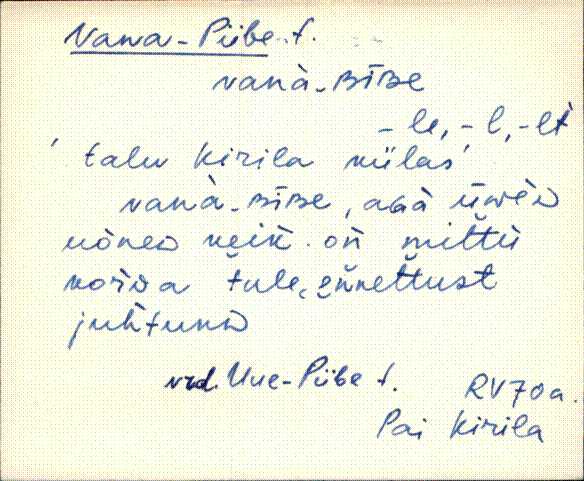 Vana-Piibe t.
vanà-ʙīʙe
-le, -l, -lt
'talu Kirila külas'
vanà-ʙīʙe, aɢà ūᴡeᴅ
nòneᴅ keik. on mittu
korᴅa tule, ennettust
juhtunᴅ
vrd. Uue-Piibe t.
RV70a.
Pai Kirila